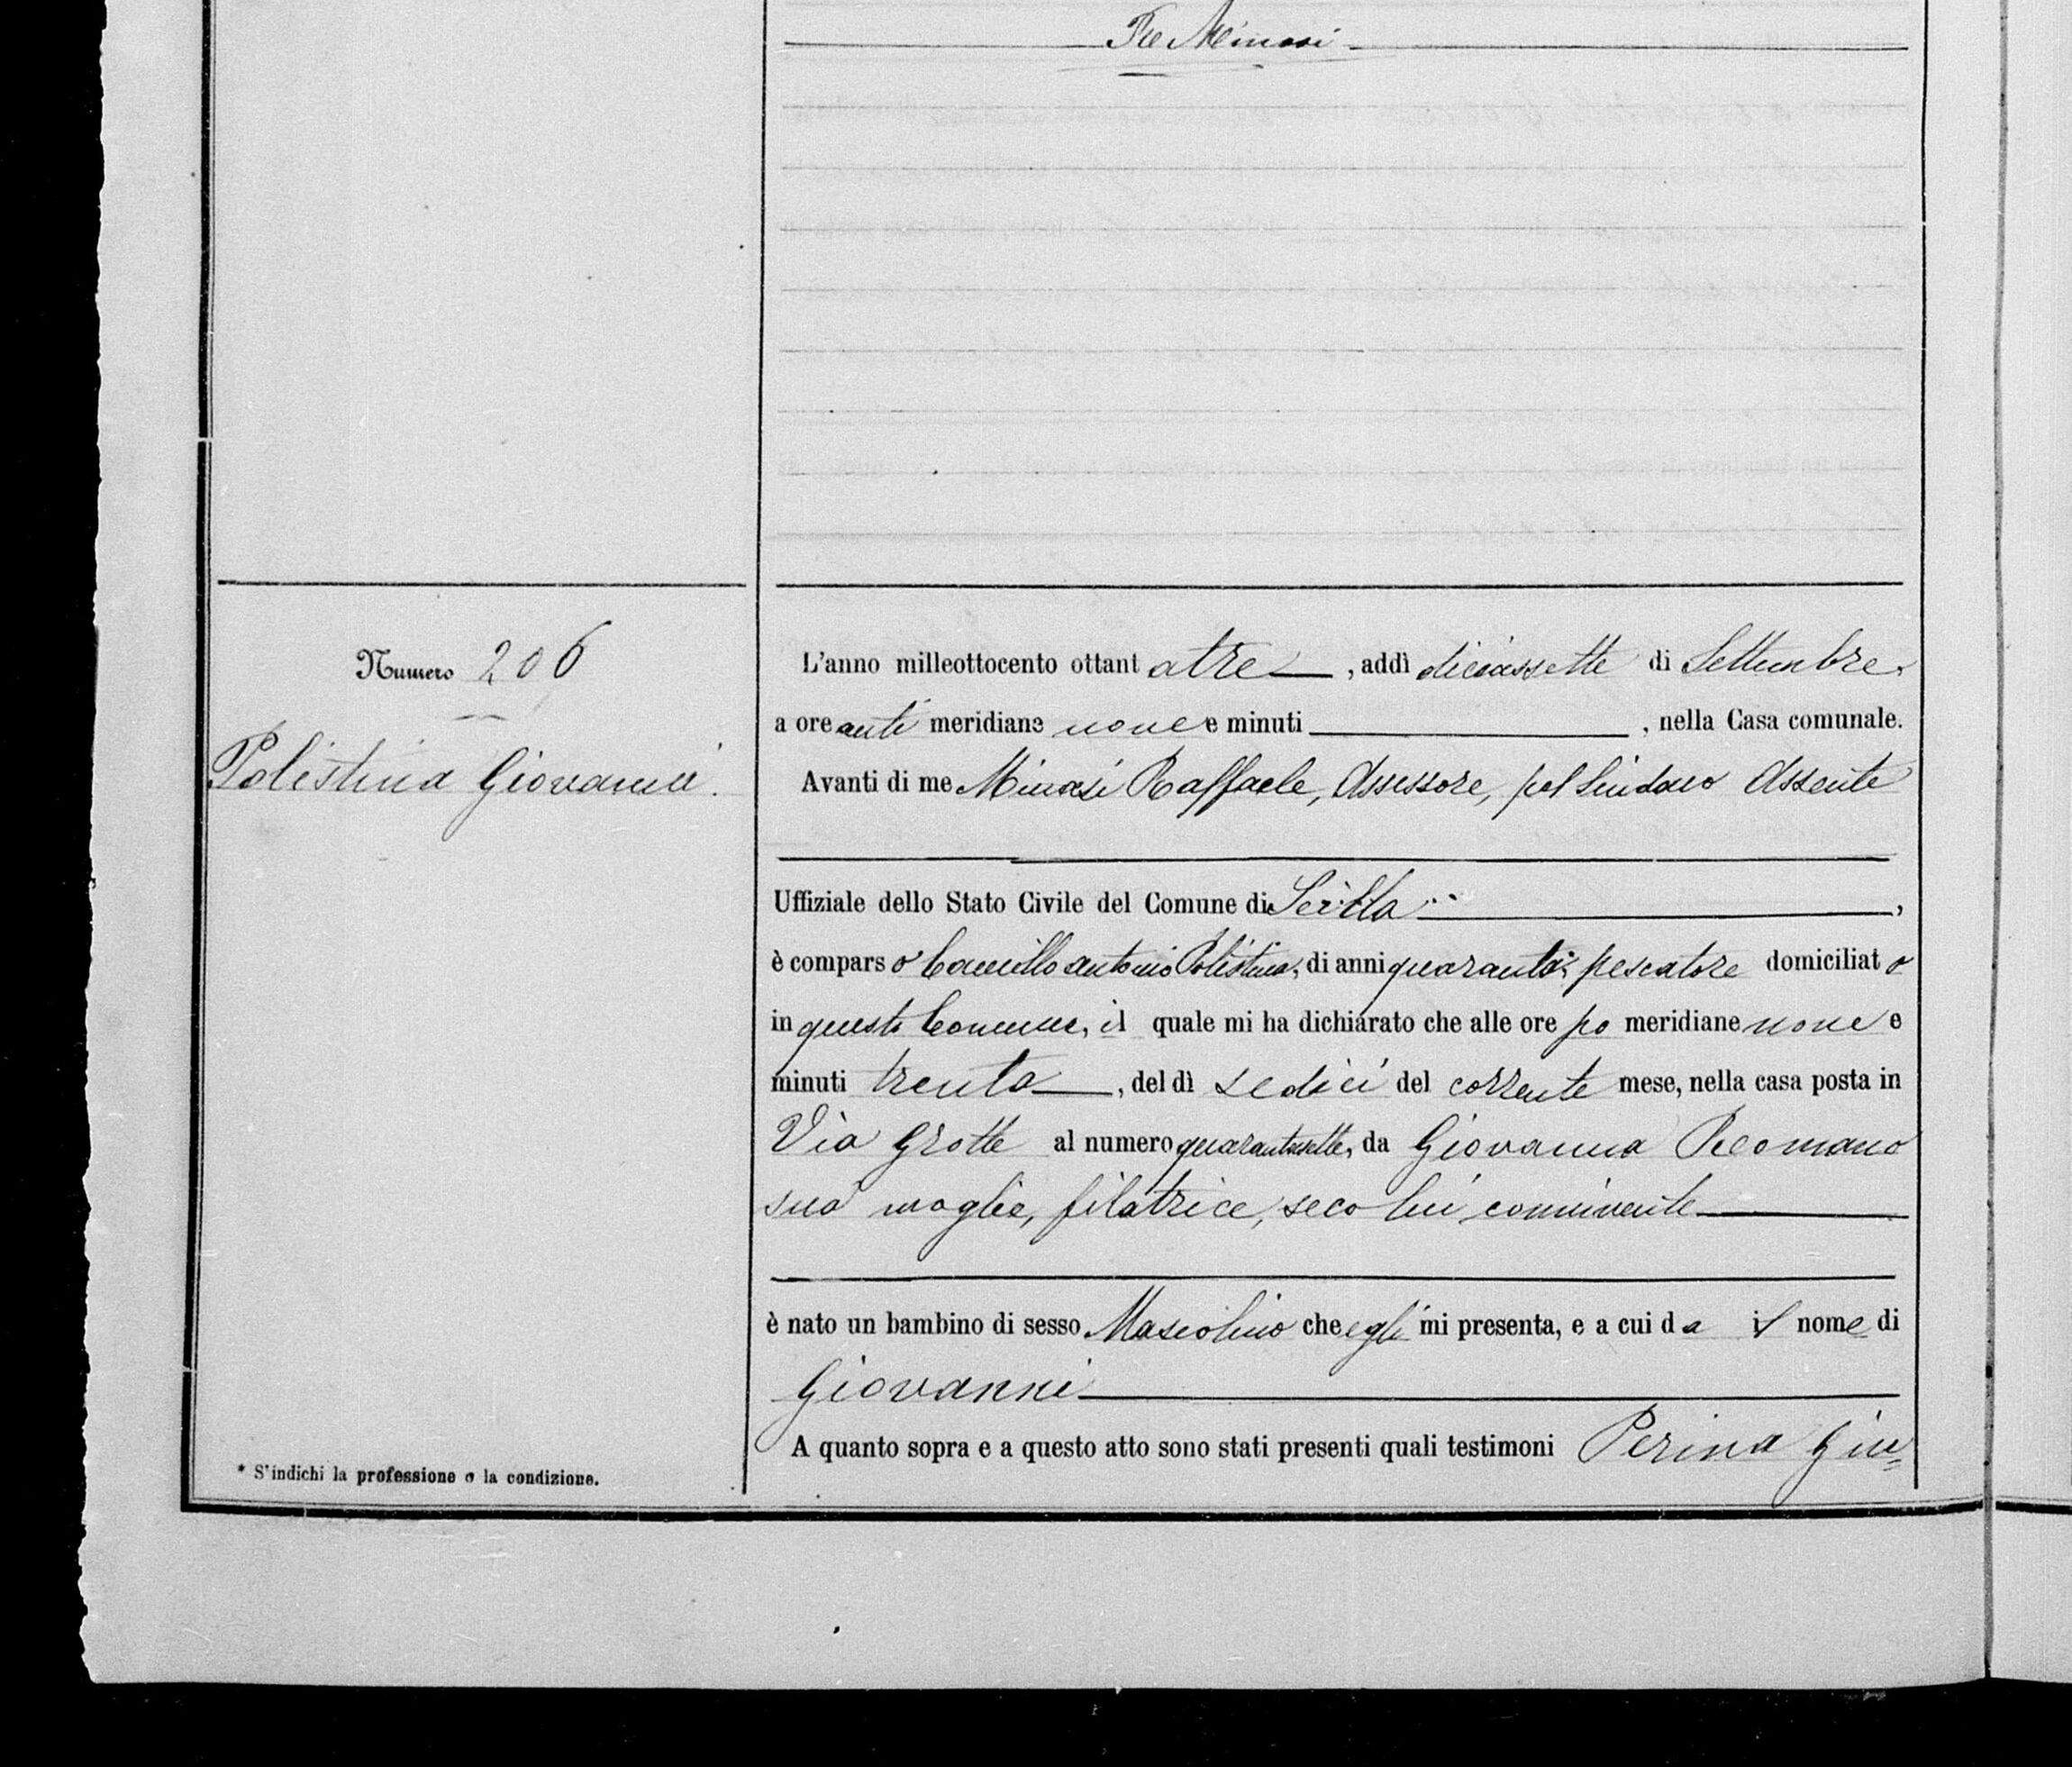 Re Minasi
Numero 206
Polistina Giovanni.
L'anno milleottocento ottantatre, addì diciassette di Settembre,
a ore anti meridiane nove e minuti , nella Casa comunale.
Avanti di me Minasi Raffaele, Assessore, pel Sindaco Assente
Uffiziale dello Stato Civile del Comune di Scilla,
è comparso Carmillo Antonio Polistina, di anni quaranta, pescatore domiciliato
in questo Comune, il quale mi ha dichiarato che alle ore po meridiane nove e
minuti trenta, del dì sedici del corrente mese, nella casa posta in
Via Grotte al numero quarantasette, da Giovanna Romano
sua moglie, filatrice, seco lui convivente
è nato un bambino di sesso Mascolino che egli mi presenta, e a cui da il nome di
Giovanni
A quanto sopra e a questo atto sono stati presenti quali testimoni Perina Giu=
* S'indichi la professione o la condizione.